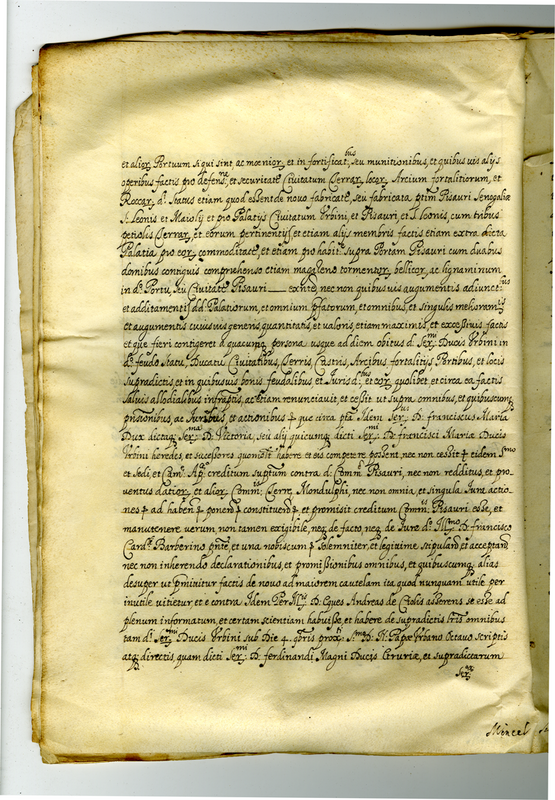 et alior. Portuum si qui sint, ac mœnior, et in fortificat.bus seu munitionibus, et quibus vis alijs
operibus factis pro defens.ne, et securitate Civitatum Terrar. locor. Arcium fortalitiorum, et
Roccar. d.i Status etiam quod essent de novo fabricate, seu fabricata ptim Pisauri Senogaliæ
S. Leonis et Maiolij et pro Palatijs Civitatum Urbini, et Pisauri, et S. Leonis, cum tribus
petiolis Terrar. et eorum pertinentijs, et etiam alijs membris factis etiam extra dicta
Palatia pro eor. commoditate, et etiam pro habit.ne supra Portam Pisauri cum duabus
domibus contiguis comprehenso etiam magaleno tormentor. bellicor. ac lignaminum
in d.o Portu, seu Civitate Pisauri — exnte, nec non quibusvis augumentis adiunct.bus
et additamentis dd. Palatiorum, et omnium pfatorum, et omnibus, et singulis melioram.tis
et augumentis cuiusvis generis quantitatis, et valoris etiam maximi, et excessivi factis
et que fieri contigeret a quacunq. persona usque ad diem obitus d. Ser.mi Ducis Urbini in
d.o feudo Statu, Ducatu Civitatibus, Terris Castris, Arcibus fortalitijs Portibus, et locis
supradictis et in quibusvis bonis feudalibus et Jurisd.bus et eor. quolibet et circa ea factis
salvis allodialibus infraptis, ac etiam renunciavit, et cessit ut supra omnibus, et quibuscumq.
ptensionibus, ac Juribus, et actionibus p que circa pta Idem Ser.mus D. franciscus Maria
Dux dictaq. Ser.ma D. Victoria, seu alij quicumq. dicti Ser.mi D. francisci Mariæ Ducis
Urbini heredes, et successores quomolt habere et eis competere possent, nec non cessit p eidem S.mo
et Sedi, et Cam.e Ap.ce creditum suptum contra d. Comm.tem Pisauri, nec non redditus, et pro
ventus dation, et alior. Comm.tis Terre Mondulphi, nec non omnia, et singula Jura actio
nes p ad haben p ponend constituend p et promisit creditum Comm.tis Pisauri esse, et
manutenere verum non tamen exigibile, neq. de facto, neq. de Jure d.o Ill.mo D. francisco
Card.li Barberino pnte, et una nobiscum p solemniter, et legitime stipulan et acceptan
nec non inherendo declarationibus, et promissionibus omnibus, et quibuscumq. alias
desuper ut pmittitur factis de novo ad maiorem cautelam ita quod nunquam utile per
inutile vitietur, et e contra Idem Per Ill.is D. Eques Andreas de Ciolis asserens se esse ad
plenum informatum, et certam scientiam habuisse, et habere de supradictis lris omnibus
tam d.i Ser.mi Ducis Urbini sub Die 4. 9bris prox. S.mo D. N. Papæ Urbano Octavo Scriptis
atq. directis, quam dicti Ser.mi D. ferdinandi Magni Ducis Etruriæ, et supradictarum
Ser.me